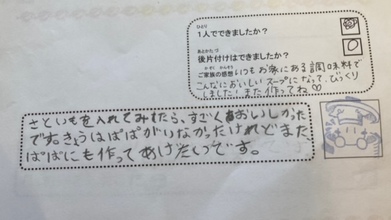 1人でできましたか？
後片付けはできましたか？
ご家族の感想 いつもお家にある調味料で
こんなにおいしいスープになって、びっくり
しました！また作ってね♡
さといもを入れてみたら、すごくおいしかった
です。きょうはぱぱがいなかったけれどまた
ぱぱにも作ってあげたいです。